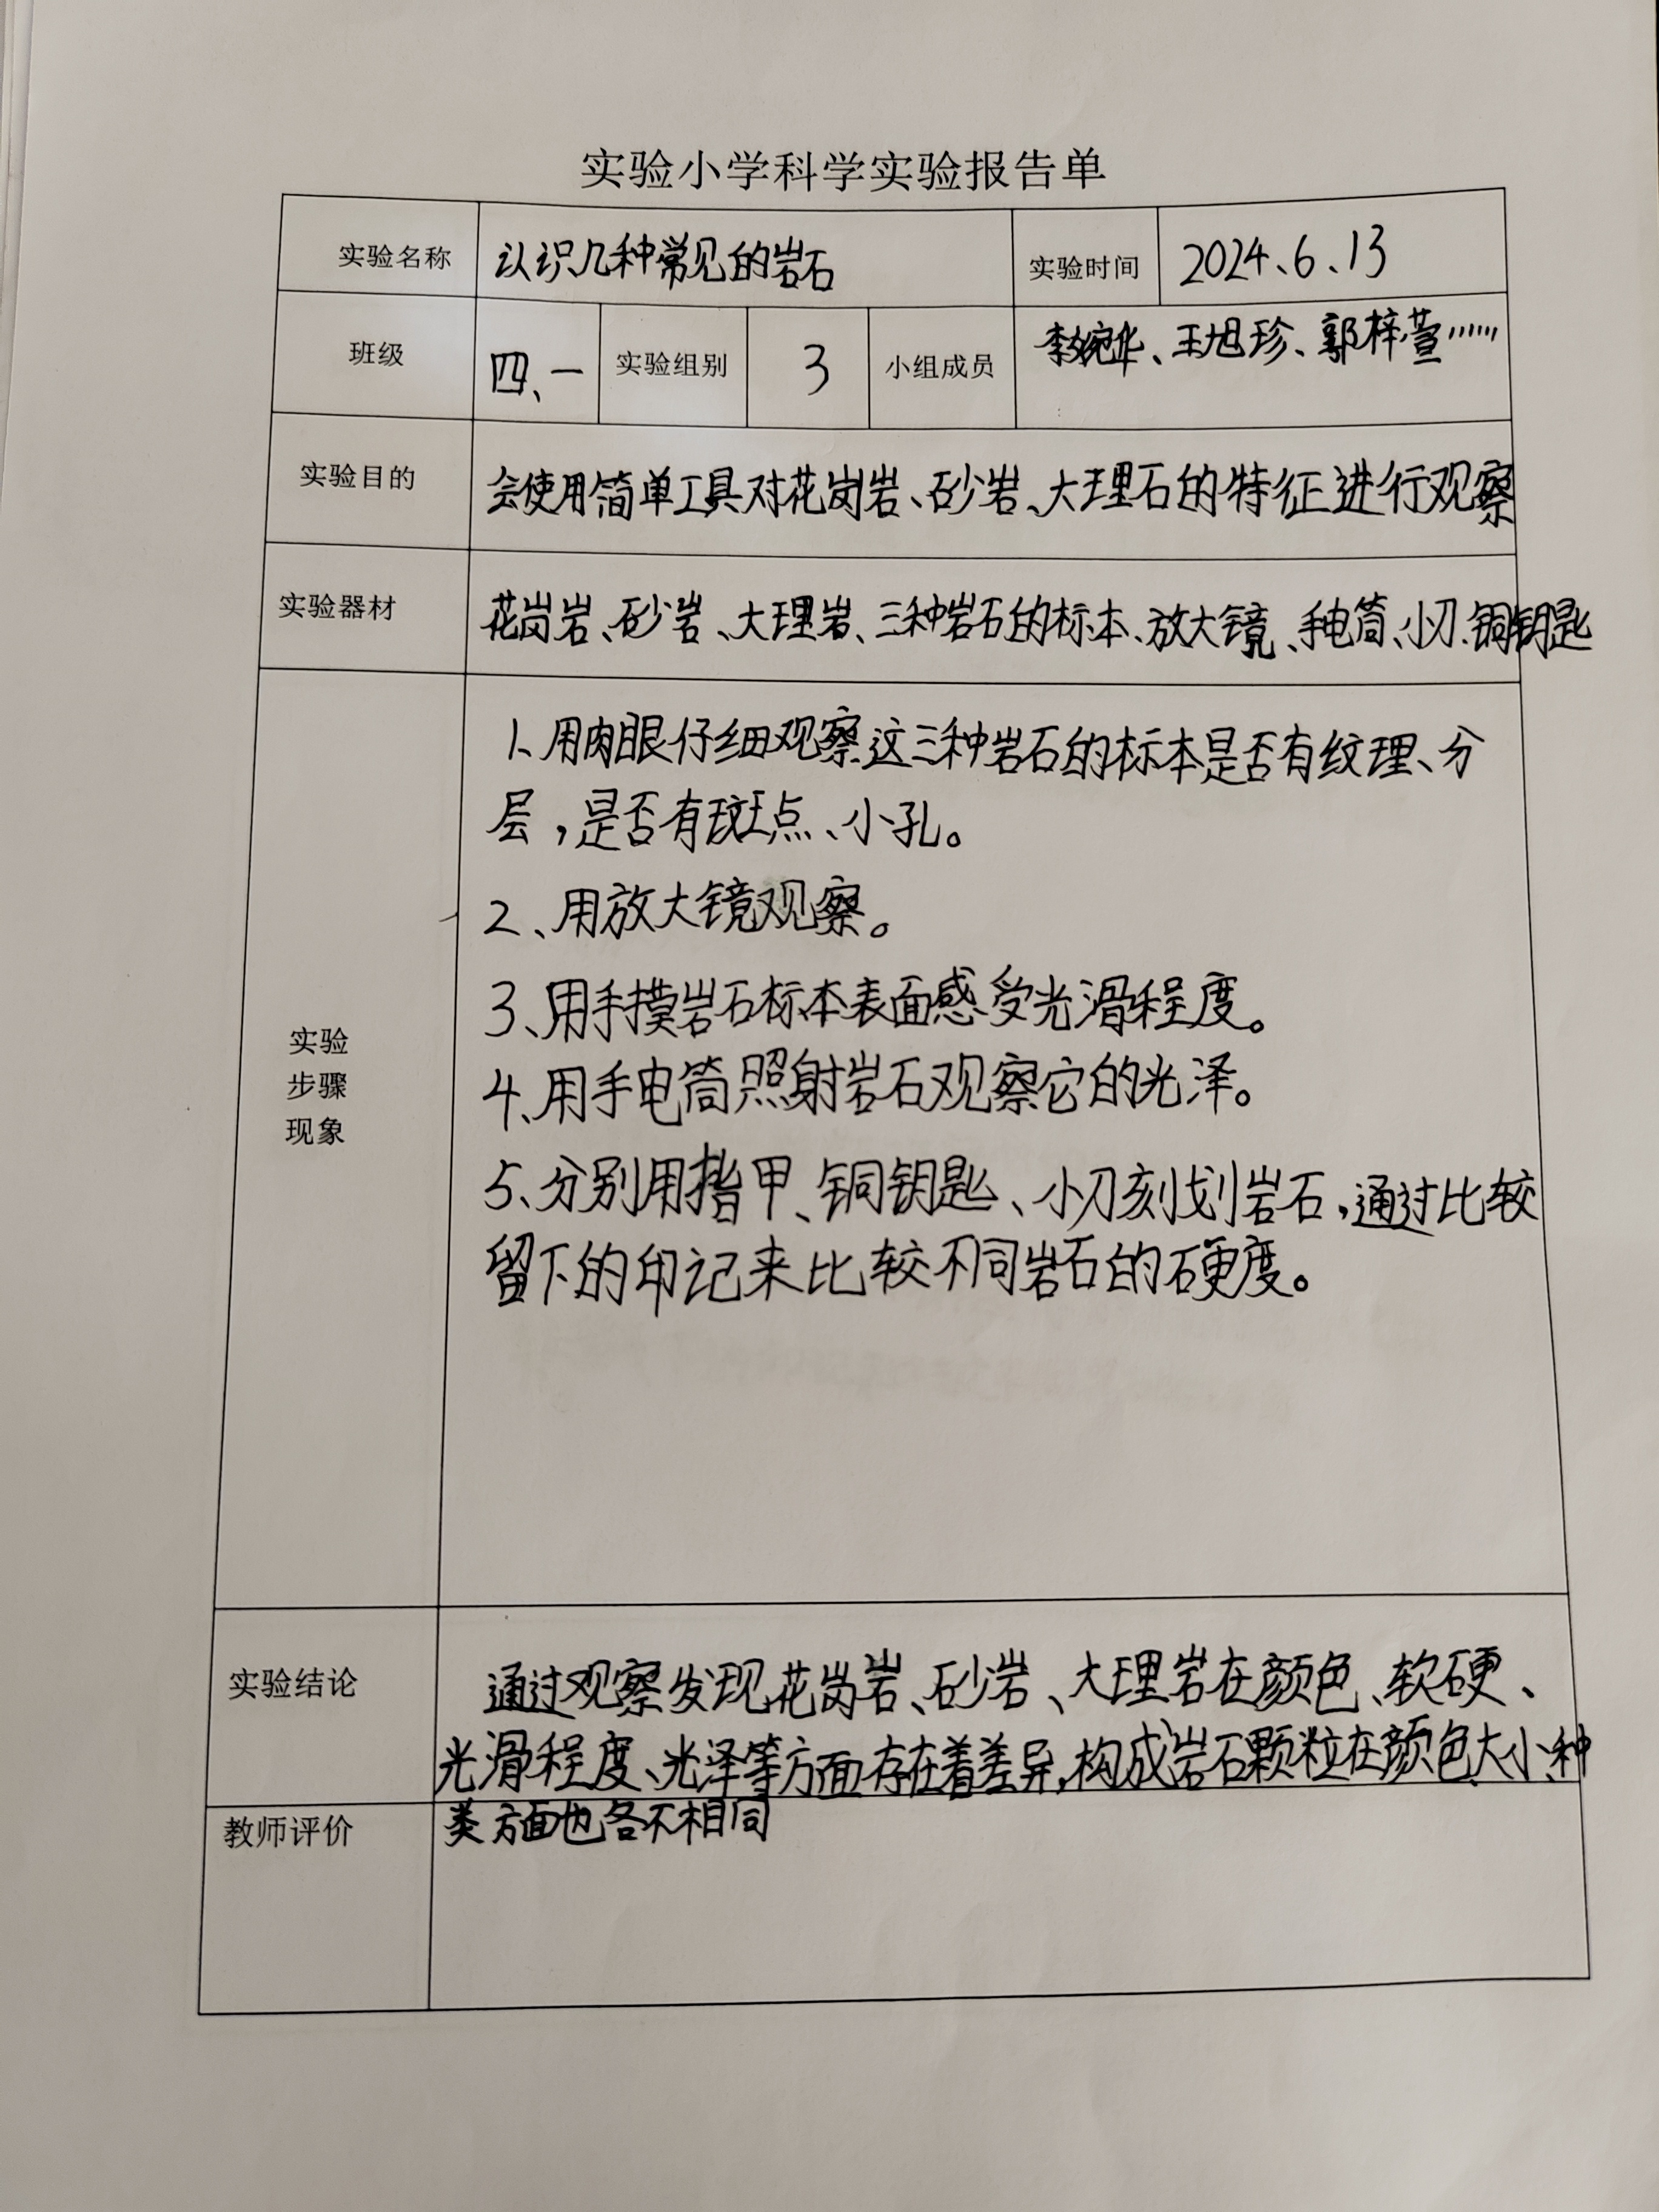 实验小学科学实验报告单
实验名称 认识几种常见的岩石 实验时间 2024、6、13
班级 四、一 实验组别 3 小组成员 李婉华、王旭珍、郭梓萱……
实验目的 会使用简单工具对花岗岩、砂岩、大理石的特征进行观察
实验器材 花岗岩、砂岩、大理岩、三种岩石的标本、放大镜、手电筒、小刀、铜钥匙
实验
步骤
现象
1、用肉眼仔细观察这三种岩石的标本是否有纹理、分
层，是否有斑点、小孔。
2、用放大镜观察。
3、用手摸岩石标本表面感受光滑程度。
4、用手电筒照射岩石观察它的光泽。
5、分别用指甲、铜钥匙、小刀刻划岩石，通过比较
留下的印记来比较不同岩石的硬度。
实验结论 通过观察发现花岗岩、砂岩、大理岩在颜色、软硬、
光滑程度、光泽等方面存在着差异，构成岩石颗粒在颜色、大小、种
教师评价 类方面也各不相同